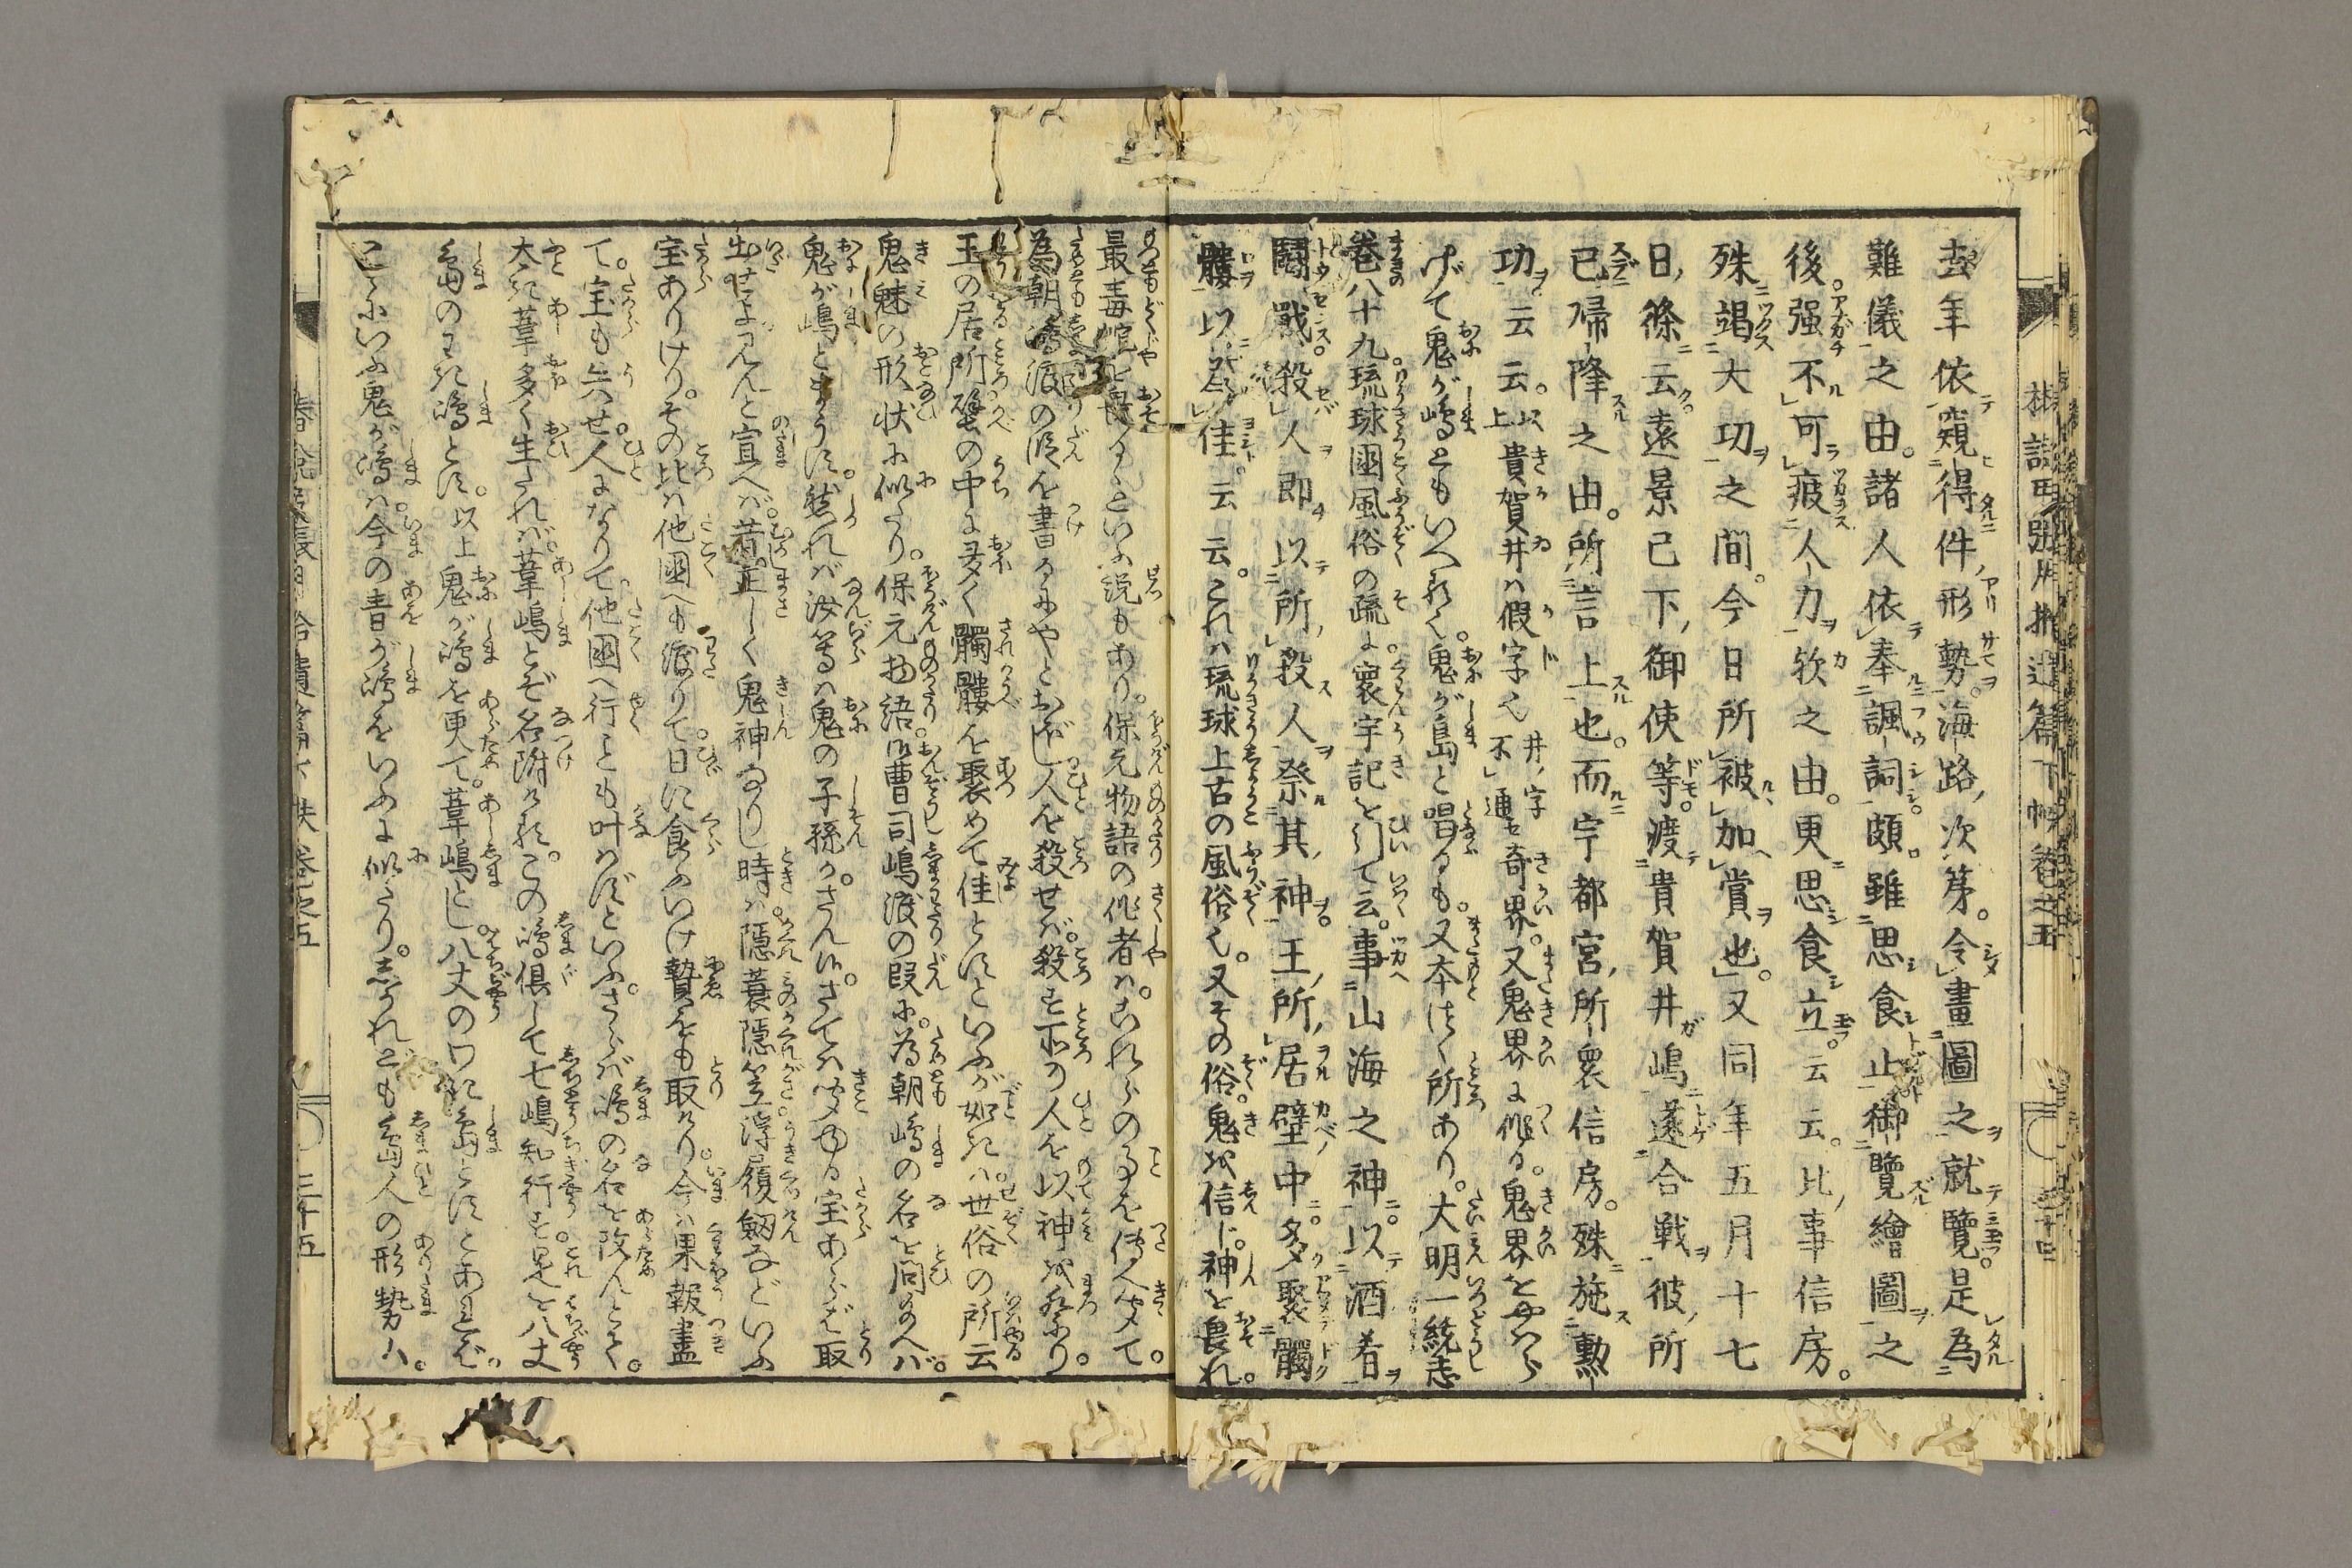 去年依窺得件形勢。海路次第。令畫圖之就覽。是為
難儀之由。諸人依奉諷詞。頗雖思食止御覽繪圖之
後。强不可疲人力欤之由。更思食立。云云。比事信房。
殊竭大功之間。今日所被加賞也。又同年五月十七
日條云遠景已下御使等。渡貴賀井嶋遂合戦彼所
已帰降之由。所言上也。而宇都宮所衆信房。殊施勲
功云云。以上貴賀井ハ假字也井ノ字不通せ奇界。又鬼界に作る。鬼界を
げて鬼が嶋ともいへれど。鬼が島と唱るも。又本づく所あり。大明一統志
巻八十九琉球國風俗の疏に。寰宇記を引て云。事山海之神以酒肴
鬪戰殺人即以所殺人祭其神王所居壁中多聚髑
髏以為佳云云。これハ琉球上古の風俗也。又その俗。鬼を信じ。神を畏れ。
最毒虵を畏るゝといふ説もあり。保元物語の作者ハ。これらの事を傳へ聞て。
為朝嶋渡の段を書るにやとおぼし人を殺せバ。殺す所の人を以神を祭り
王の居所壁の中に多く髑髏を聚めて佳とすといふが如きハ。世俗の所云
鬼魅の形状に似たり。保元物語。御曹司嶋渡の段に。為朝嶋の名を問給へバ。
鬼が嶋とまうす。然れバ汝等ハ鬼の子孫か。さん候。さてハ聞ゆる宝あらバ取
出せよ見んと宣へバ。昔正しく鬼神なりし時ハ。隠蓑隠笠浮履劔などいふ
宝ありけり。その比ハ他國へも渡りて。日に食ふいけ贄をも取けり。今ハ果報盡
て。宝も失せ。人になりて。他國へ行ことも叶はずといふ。さらバ嶋の名を改んとて。
太き葦多く生たれバ。葦嶋とぞ名附ける。この嶋倶して七嶋知行す。是を八丈
島のわき嶋とす。以上鬼が嶋を更て。葦嶋とし。八丈のわき島とすとあれど。
こゝにいふ鬼が嶋ハ。今の青が嶋をいふに似たり。しかれども島人の形勢ハ。
三十五